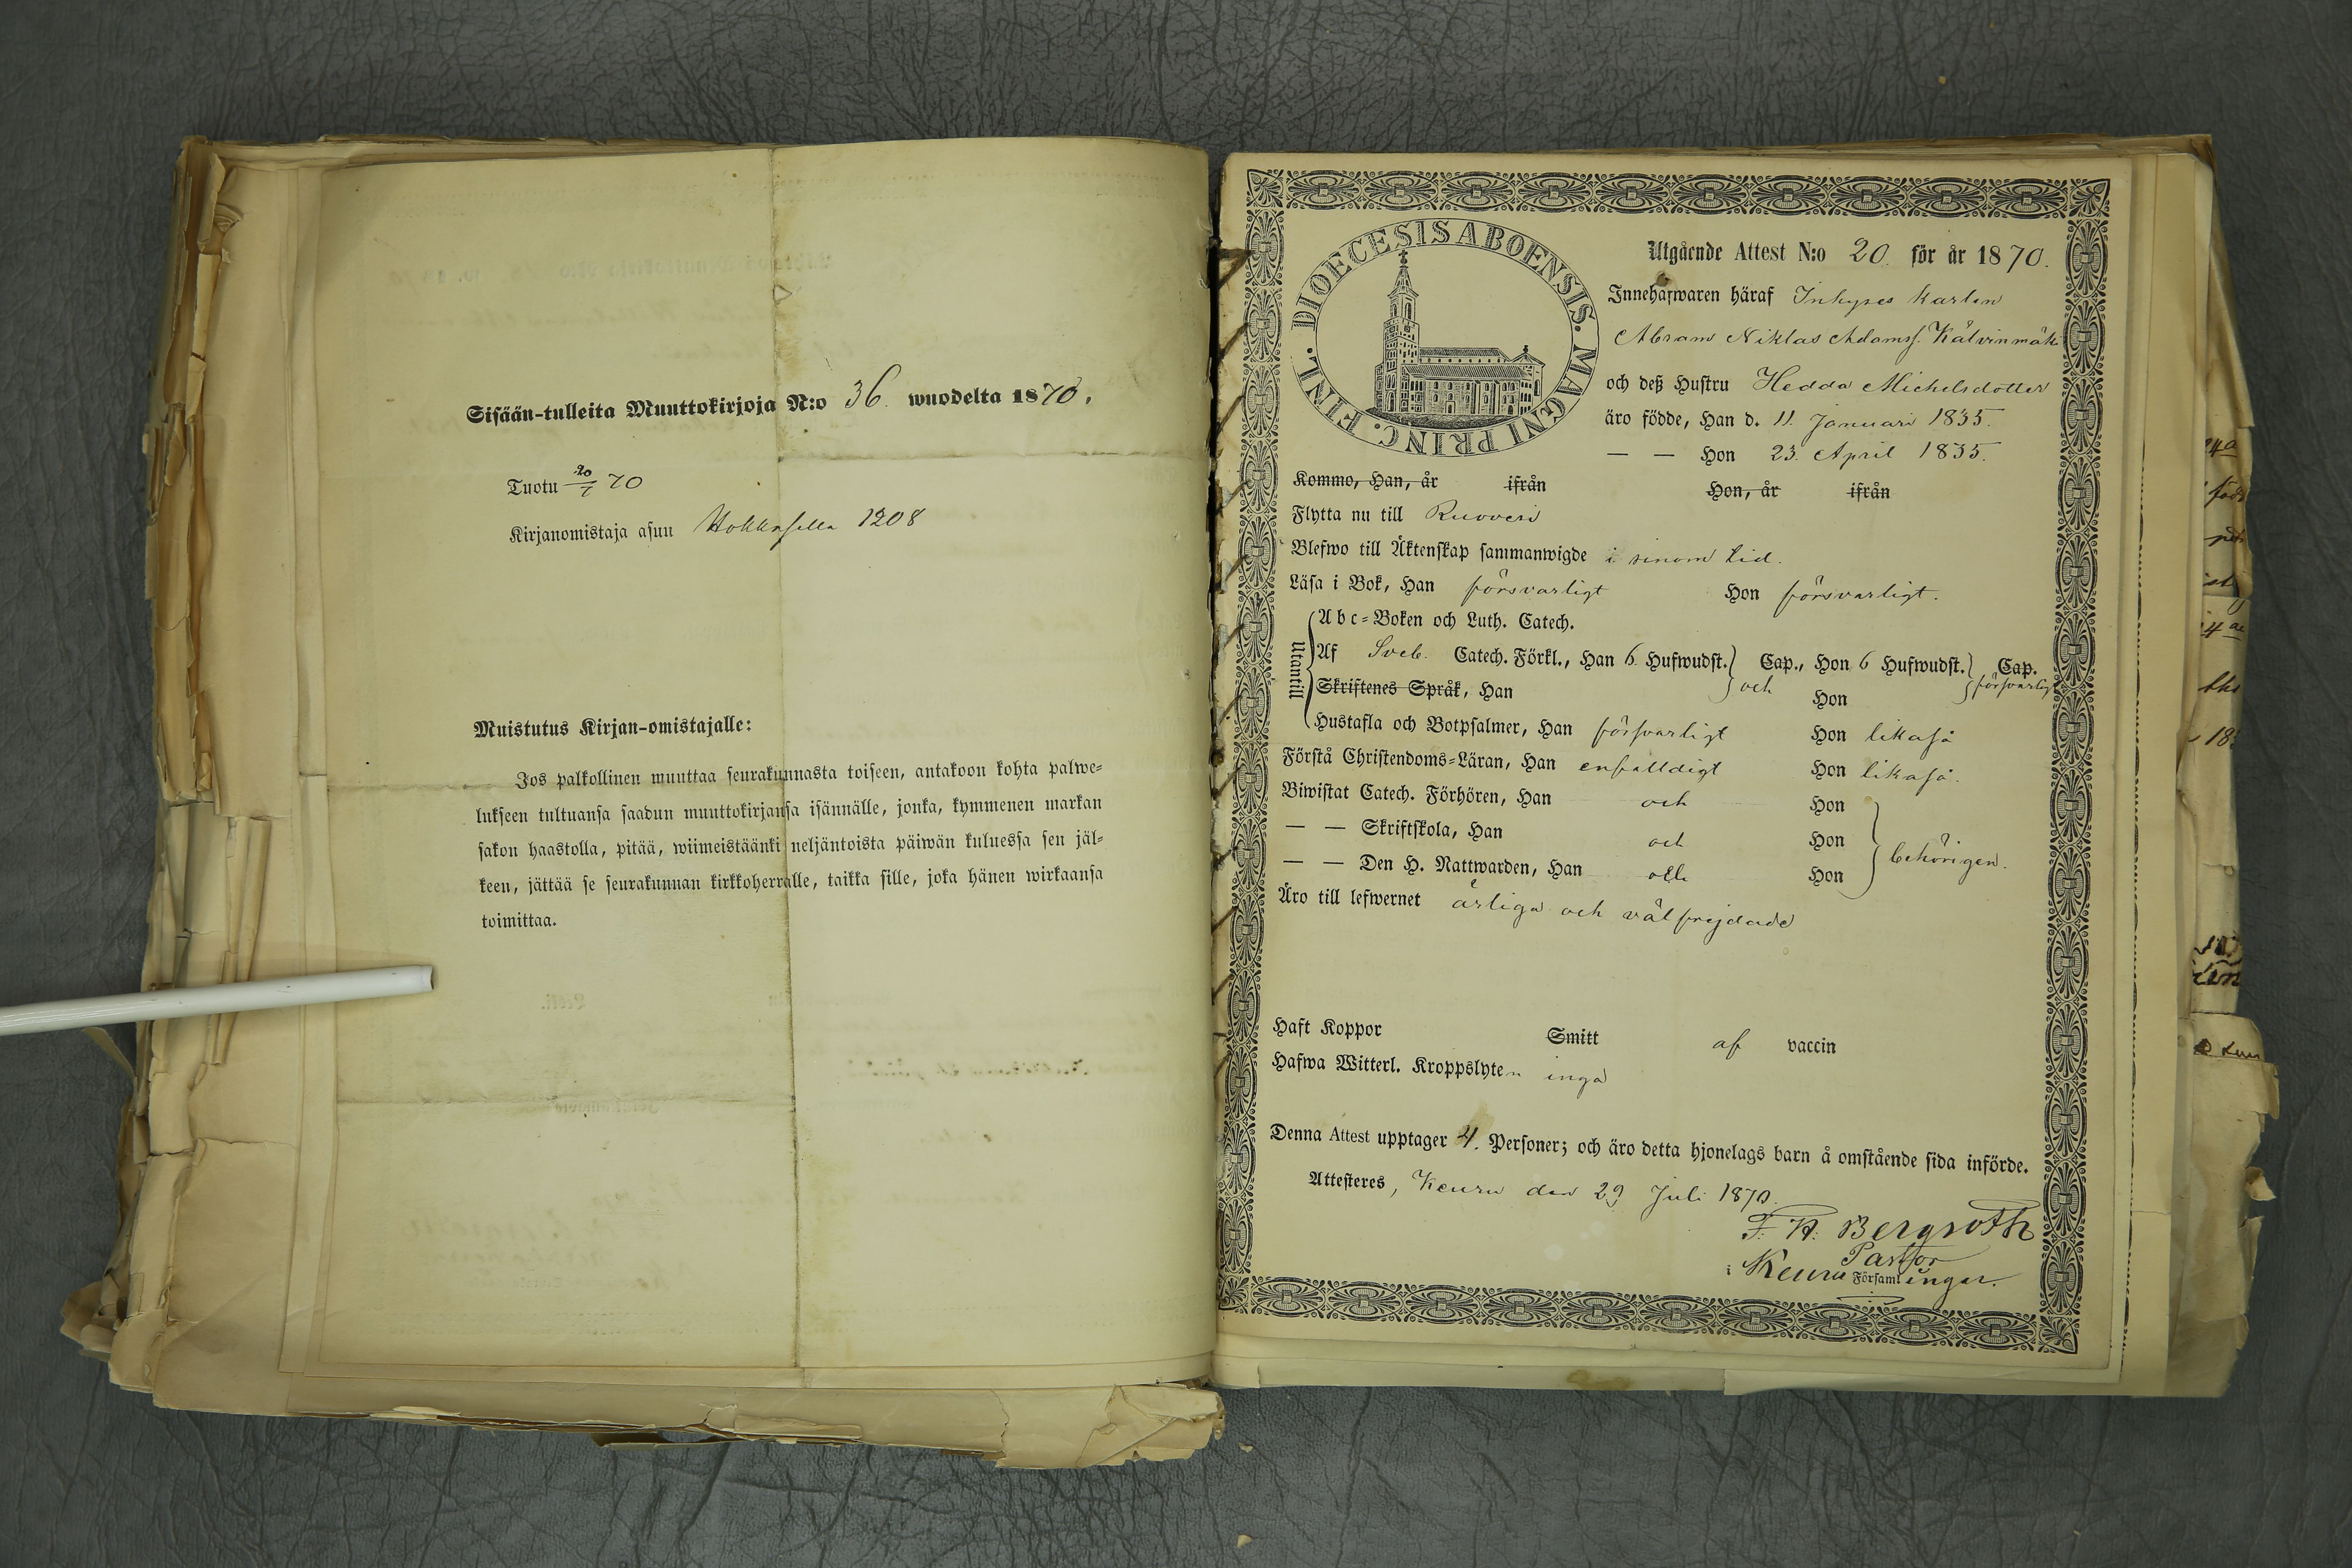 Sisään-tulleita Muuttokirjoja N:o 36. wuodelta 1870.
Tuotu 20/7 70
Kirjanomistaja asuu 1208
Muistutus Kirjan-omistajalle:
Jos palkollinen muuttaa seurakunnasta toiseen, antakoon kohta palwe-
lukseen tultuansa saadun muuttokirjansa isännälle, jonka, kymmenen markan
sakon haastolla, pitää, wiimeistäänki neljäntoista päiwän kuluessa sen jäl-
keen, jättää se seurakunnan kirkkoherralle, taikka sille, joka hänen wirkaansa
toimittaa.
DIOECESIS ABOENSIS. MAGNI PRINC. FINL.
Utgående Attest N:o 20. för år 1870.
Innehafwaren häraf Inhyses karlen
Abram Niklas Adamss. Kälvinmäki
och deß Hustru Hedda Michelsdotter
äro födde, Han d. 11. Januari 1835.
— — Hon 23. April 1835.
Kommo, Han, år ifrån Hon, år ifrån
Flytta nu till Ruovesi
Blefwo till Äktenskap sammanwigde i sinom tid.
Läsa i Bok, Han försvarligt Hon försvarligt.
Utantill
Abc-Boken och Luth. Catech.
Af Sveb. Catech. Förkl., Han 6 Hufwudst. Cap., Hon 6 Hufwudst. Cap.
Skriftenes Språk, Han och Hon försvarlig
Hustafla och Botpsalmer, Han försvarligt Hon likaså
Förstå Christendoms-Läran, Han enfaldigt Hon likaså.
Biwistat Catech. Förhören, Han och Hon
— — Skriftskola, Han och Hon behörigen.
— — Den H. Nattwarden, Han och Hon
Äro till lefwernet ärliga och välfrejdade
Haft Koppor Smitt af vaccin
Hafwa Witterl. Kroppslyten inga
Denna Attest upptager 4. Personer; och äro detta hjonelags barn å omstående sida införde.
Attesteres, Keuru den 29 Juli 1870.
F. H. Bergroth
Pastor
i Keuru Församlingar.